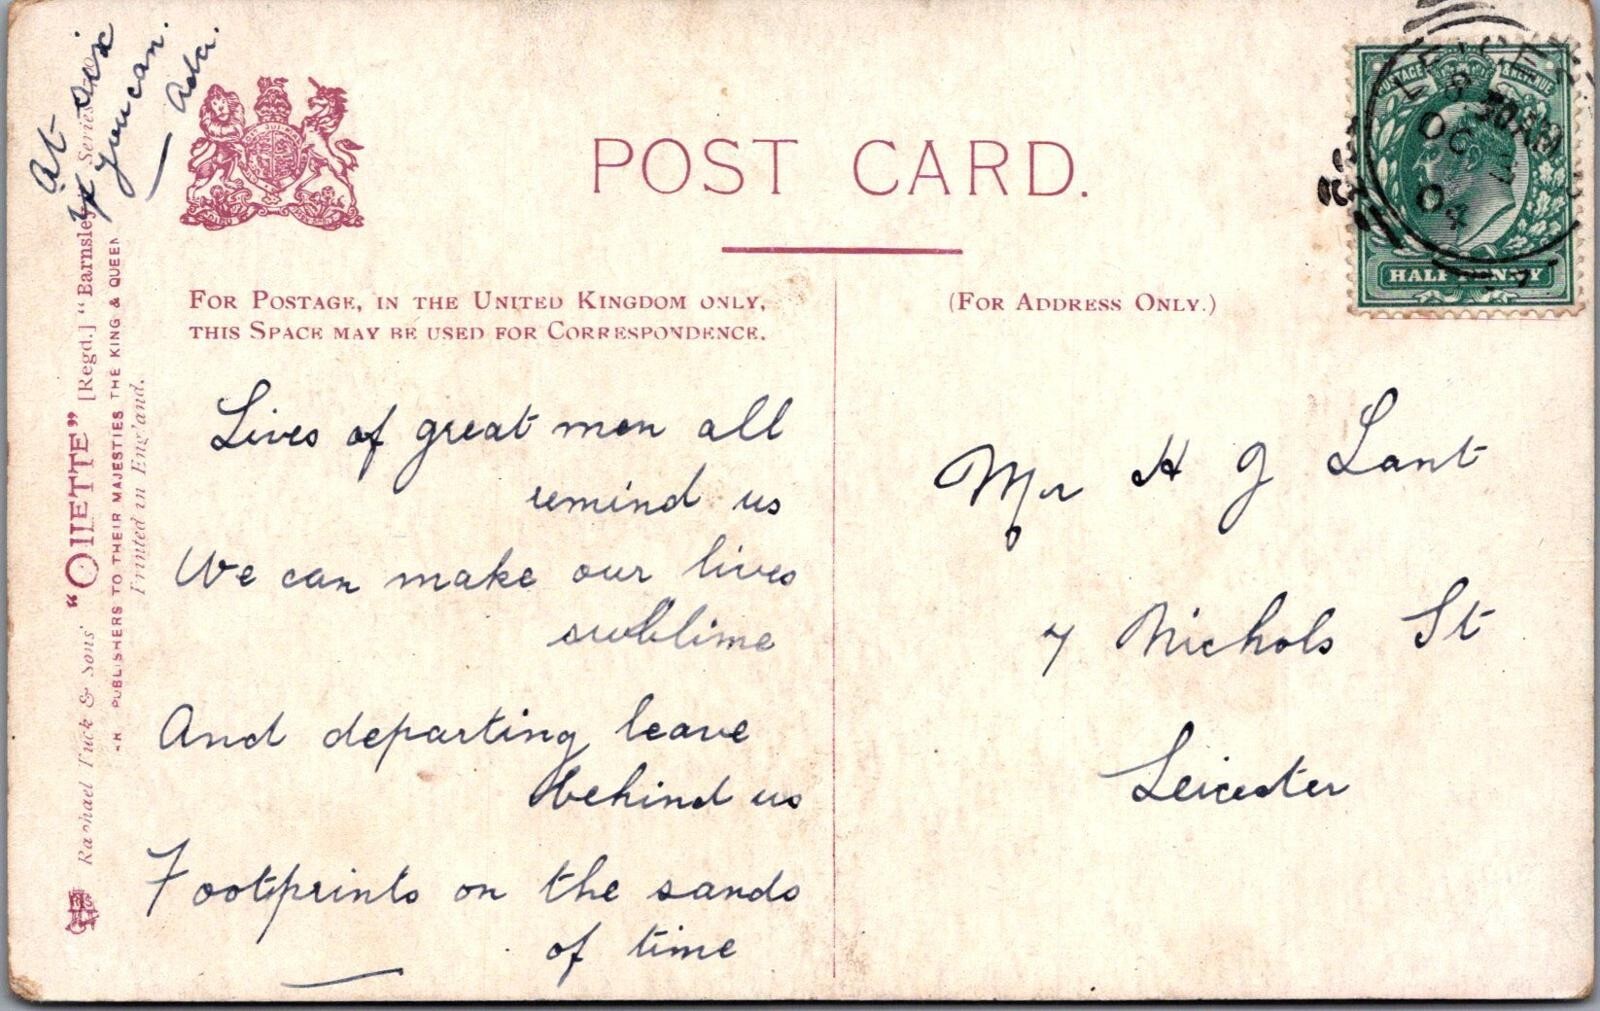 At six
if you can.
Ada.
POST CARD.
FOR POSTAGE, IN THE UNITED KINGDOM ONLY,
THIS SPACE MAY BE USED FOR CORRESPONDENCE.
(FOR ADDRESS ONLY.)
POSTAGE & REVENUE
HALF PENNY
LEICESTER
8 30 AM
OC 11
04
Raphael Tuck & Sons' "OILETTE" [Regd.] "Barnsley" Series
PUBLISHERS TO THEIR MAJESTIES THE KING & QUEEN
Printed in England.
Lives of great men all
remind us
We can make our lives
sublime
And departing leave
behind us
Footprints on the sands
of time
Mr H J Lant
7 Nichols St
Leicester